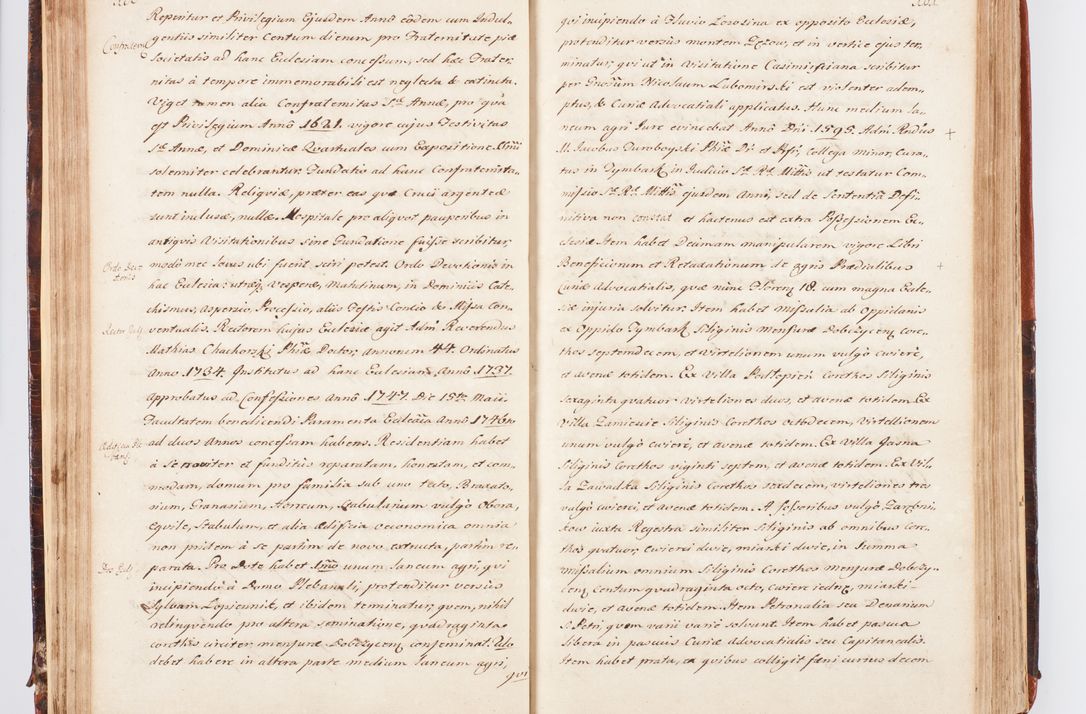 Reperitur et Privilegium Ejusdem Annô eôdem cum Indul„
Confratern
gentiis similiter Centum dierum pro Fraternitate piæ
Societatis ad hanc Ecclesiam concessum, sed hæc Frater„
nitas à tempore immemorabili est neglecta & extincta.
Viget tamen alia Confraternitas S. Annæ, pro qua
est Privilegium Annô 1621. vigore cujus Festivitas
S. Annæ, et Dominicæ Quartuales cum Expositione
solemniter celebrantur. Fundatio ad hanc Confraternita„
tem nulla. Reliquiæ, præter eas quæ Cruci argenteæ
sunt inclusæ, nullæ. Hospitale pro aliquot pauperibus in
antiquis Visitationibus sine Fundatione fuisse scribitur,
modò nec locus ubi fuerit sciri potest. Ordo Devotionis in
hac Ecclesia: utræq Vesperæ, Matutinum, in Dominicis Cate„
chismus, Aspersio, Processio, aliis Festis Concio & Missa Con„
ventualis. Rectorem hujus Ecclesiæ agit Adm Reverendus
Mathias Chachorzki Phiæ Doctor, annorum 44. Ordinatus
Anno 1734. Institutus ad hanc Ecclesiam Annô 1737.
Approbatus ad Confessiones Annô 1747. Die 15ta Maii.
Facultatem benedicendi Paramenta Annô 1746to
ad duos Annos concessam habens. Residentiam habet
à se noviter et funditus reparatam, honestam, et com„
modam, domum pro familia sub uno tecto, Braxato„
rium, Granarium, Horreum, Stabulanum vulgò Obora,
Equile, Stabulum, et alia ædificia œconomica omnia
non pridem à se partim de novo extructa, partim re„
parata. Pro Dote habet Imo unum laneum agri, qui
incipiendo à Domo Plebanali, protenditur versùs
Sylvam Lopiennik, et ibidem terminatur, quem, nihil
relinquendo pro altera seminatione, quadraginta
corethis circiter mensuræ Dobczycen conseminat. 2do
debet habere in altera parte medium laneum agri,
qui
qui incipiendo à Fluvio Lososina ex opposito Ecclesiæ,
protenditur versùs montem Zęzow, et in vertice ejus ter„
minatur, qui ut in Visitatione Casimirsciana scribitur
per Gnosum Nicolaum Lubomirski est violenter adem„
ptus, & Curiæ Advocatiali applicatus. Hunc medium la„
neum agri Jure evincebat Annô Dni 1595. Adm Rndus
M. Jacobus Phiæ Dr et Collega minor, Cura„
tus in Tymbark in Judicio ut testatur Com„
missio ejusdem Anni, sed de Sententia Defi„
nitiva non constat et hactenus est extra Possessionem Ec„
clesiæ. Item habet Decimam manipularem vigore Libri
Beneficiorum et Retaxationum de agris Prædialibus
Curiæ Advocatialis, quæ nunc Floren 18. cum magna Eccle„
siæ injuria solvitur. Item habet Missalia ab Oppidanis
ex Oppido Tymbark Siliginis mensuræ Dobczycen core„
thos septemdecem, et virtelionem unum vulgò cwierć,
et avenæ totidem. Ex Villa Podłopień Corethos Siliginis
sexaginta quatuor virteliones duos, et avenæ totidem. Ex
Villa Zamiescie Siliginis Corethos octodecem, virtelionem
unum vulgò cwierć, et avenæ totidem. Ex Villa Jasna
Siliginis Corethos viginti septem, et avenæ totidem. Ex Vil„
la Zawadka Siliginis Corethos sexdecem, virteliones tres
vulgò cwierci, et avenæ totidem. A Sessoribus vulgò
kow iuxta Regestra similiter Siliginis ab omnibus Core„
thos quatuor, cwierci dwie, miarki dwie, in Summa
Missalium omnium Siliginis Corethos mensuræ Dobczy„
cen centum quadraginta octo, cwierć iednę, miarki
dwie, et avenæ totidem. Item Petronalia seu Denarium
S. Petri, quem varii variè solvunt. Item habet pascua
libera in pascuis Curiæ Advocatialis seu Capitanealis.
Item habet prata, ex quibus colligit fæni currus decem